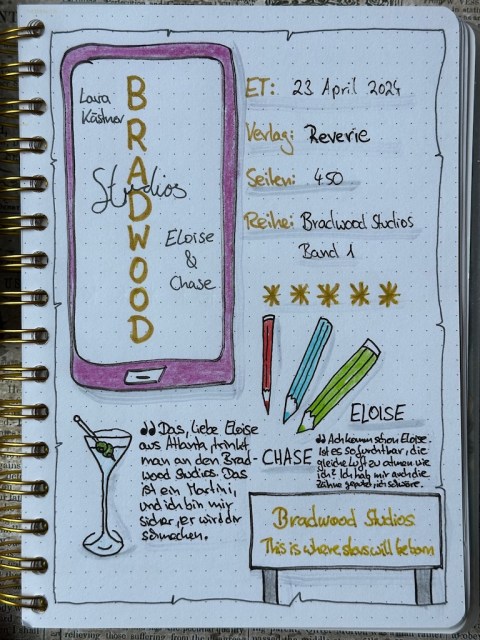 Lara
Kästner
BRADWOOD
Studios
Eloise
&
Chase
ET: 23 April 2024
Verlag: Reverie
Seiten: 450
Reihe: Bradwood Studios
Band 1
ELOISE
CHASE
"Das, liebe Eloise
aus Atlanta, trinkt
man an den Brad-
wood Studios. Das
ist ein Martini,
und ich bin mir
sicher, er wird dir
schmecken.
"Ach komm schon Eloise.
Ist es so furchtbar, die
gleiche Luft zu atmen wie
ich? Ich hab mir auch die
Zähne geputzt, ich schwöre.
Bradwood Studios
This is where stars will be born